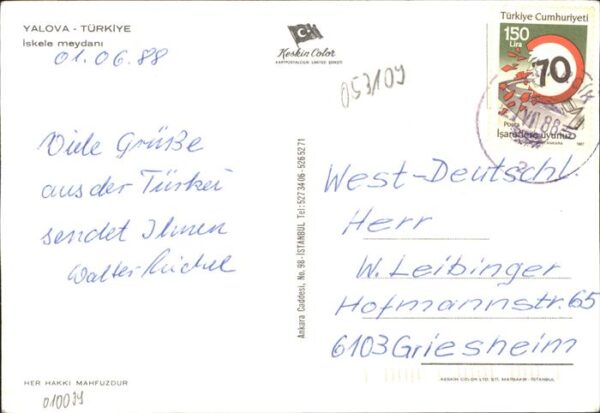 YALOVA - TÜRKİYE
İskele meydanı
01.06.88
Keskin Color
KARTPOSTALCILIK LİMİTED ŞİRKETİ
053109
Türkiye Cumhuriyeti
150
Lira
70
Posta
İşaretlere uyunuz
1987
88
Viele Grüße
aus der Türkei
sendet Ihnen
Walter
Ankara Caddesi, No. 98-İSTANBUL Tel: 527 34 06 - 526 52 71
West-Deutschl.
Herr
W. Leibinger
Hofmannstr 65
6103 Griesheim
HER HAKKI MAHFUZDUR
010039
KESKİN COLOR LTD. ŞTİ. MATBAASI - İSTANBUL